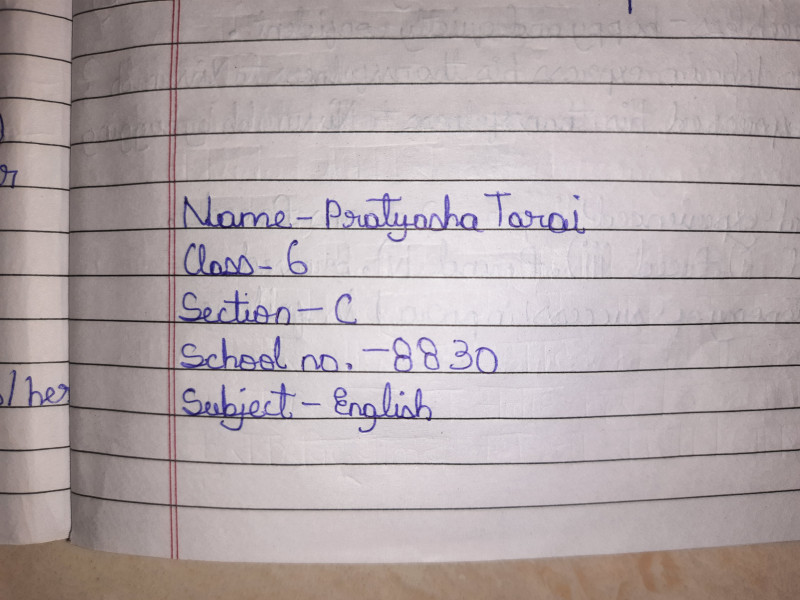 Name - Pratyasha Tarai
Class - 6
Section - C
School no. - 8830
Subject - English
/her